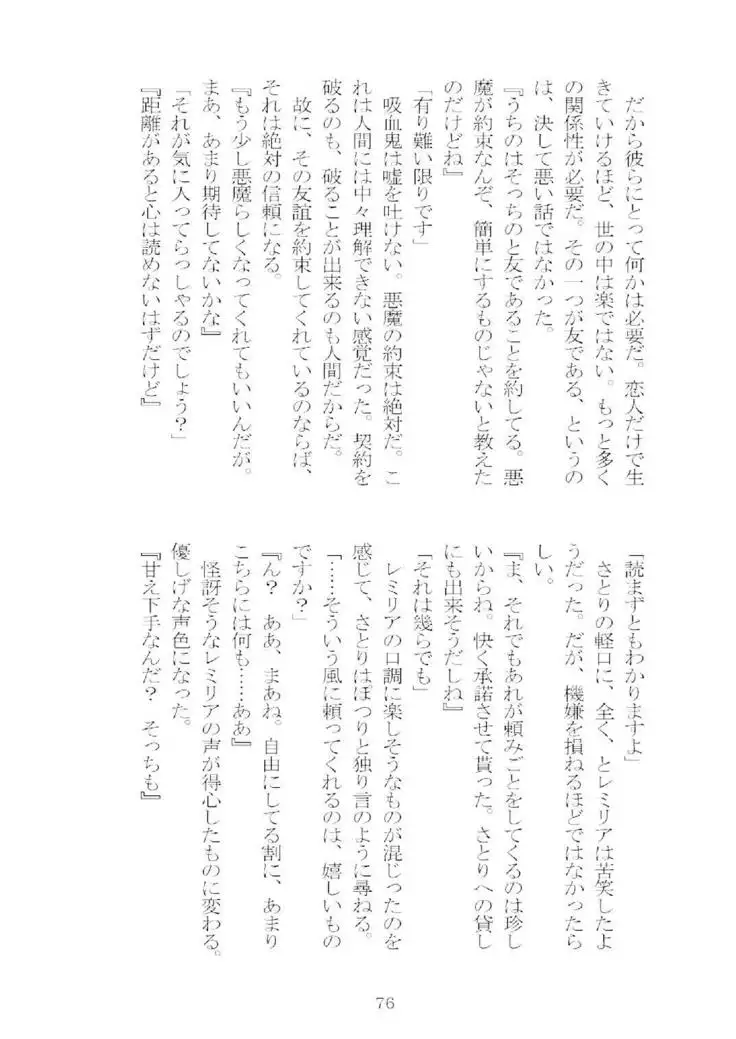 だから彼らにとって何かは必要だ。恋人だけで生
きていけるほど、世の中は楽ではない。もっと多く
の関係性が必要だ。その一つが友である、というの
は、決して悪い話ではなかった。
『うちのはそっちのと友であることを約してる。悪
魔が約束なんぞ、簡単にするものじゃないと教えた
のだけどね』
「有り難い限りです」
　吸血鬼は嘘を吐けない。悪魔の約束は絶対だ。こ
れは人間には中々理解できない感覚だった。契約を
破るのも、破ることが出来るのも人間だからだ。
　故に、その友誼を約束してくれているのならば、
それは絶対の信頼になる。
『もう少し悪魔らしくなってくれてもいいんだが。
まあ、あまり期待してないかな』
「それが気に入ってらっしゃるのでしょう？」
『距離があると心は読めないはずだけど』
「読まずともわかりますよ」
　さとりの軽口に、全く、とレミリアは苦笑したよ
うだった。だが、機嫌を損ねるほどではなかったら
しい。
『ま、それでもあれが頼みごとをしてくるのは珍し
いからね。快く承諾させて貰った。さとりへの貸し
にも出来そうだしね』
「それは幾らでも」
　レミリアの口調に楽しそうなものが混じったのを
感じて、さとりはぽつりと独り言のように尋ねる。
「……そういう風に頼ってくれるのは、嬉しいもの
ですか？」
『ん？　ああ、まあね。自由にしてる割に、あまり
こちらには何も……ああ』
　怪訝そうなレミリアの声が得心したものに変わる。
優しげな声色になった。
『甘え下手なんだ？　そっちも』
76